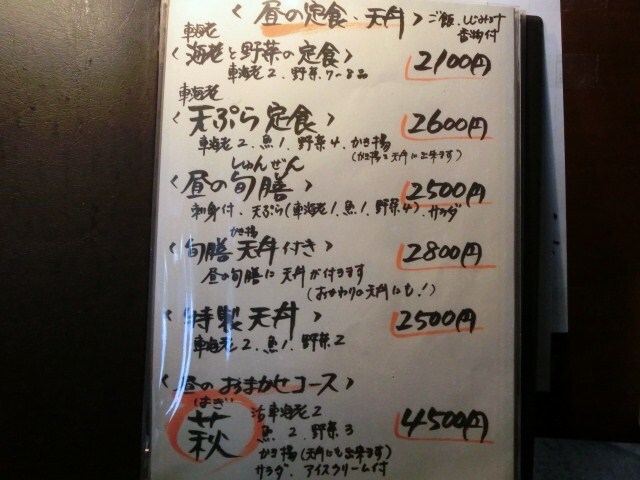 〈昼の定食・天丼〉
ご飯、しじみ汁
香物付
車海老
〈海老と野菜の定食〉 2100円
車海老2、野菜7〜8品
車海老
〈天ぷら定食〉 2600円
車海老2、魚1、野菜4、かき揚
(かき揚を天丼に出来ます)
しゅんぜん
〈昼の旬膳〉 2500円
刺身付、天ぷら(車海老1、魚1、野菜4)、サラダ
かき揚
〈旬膳 天丼付き〉 2800円
昼の旬膳に天丼が付きます
(おかわりの天丼にも!)
〈特製天丼〉 2500円
車海老2、魚1、野菜2
〈昼のおまかせコース〉
はぎ
萩 4500円
活車海老2
魚2、野菜3
かき揚(天丼にも出来ます)
サラダ、アイスクリーム付